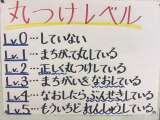 丸つけレベル
Lv.0…していない
Lv.1…まちがて丸している
Lv.2…正しく丸つけしている
Lv.3…まちがいをなおしている
Lv.4…なおしたら、ぶんせきしている
Lv.5…もういちどれんしゅうしている